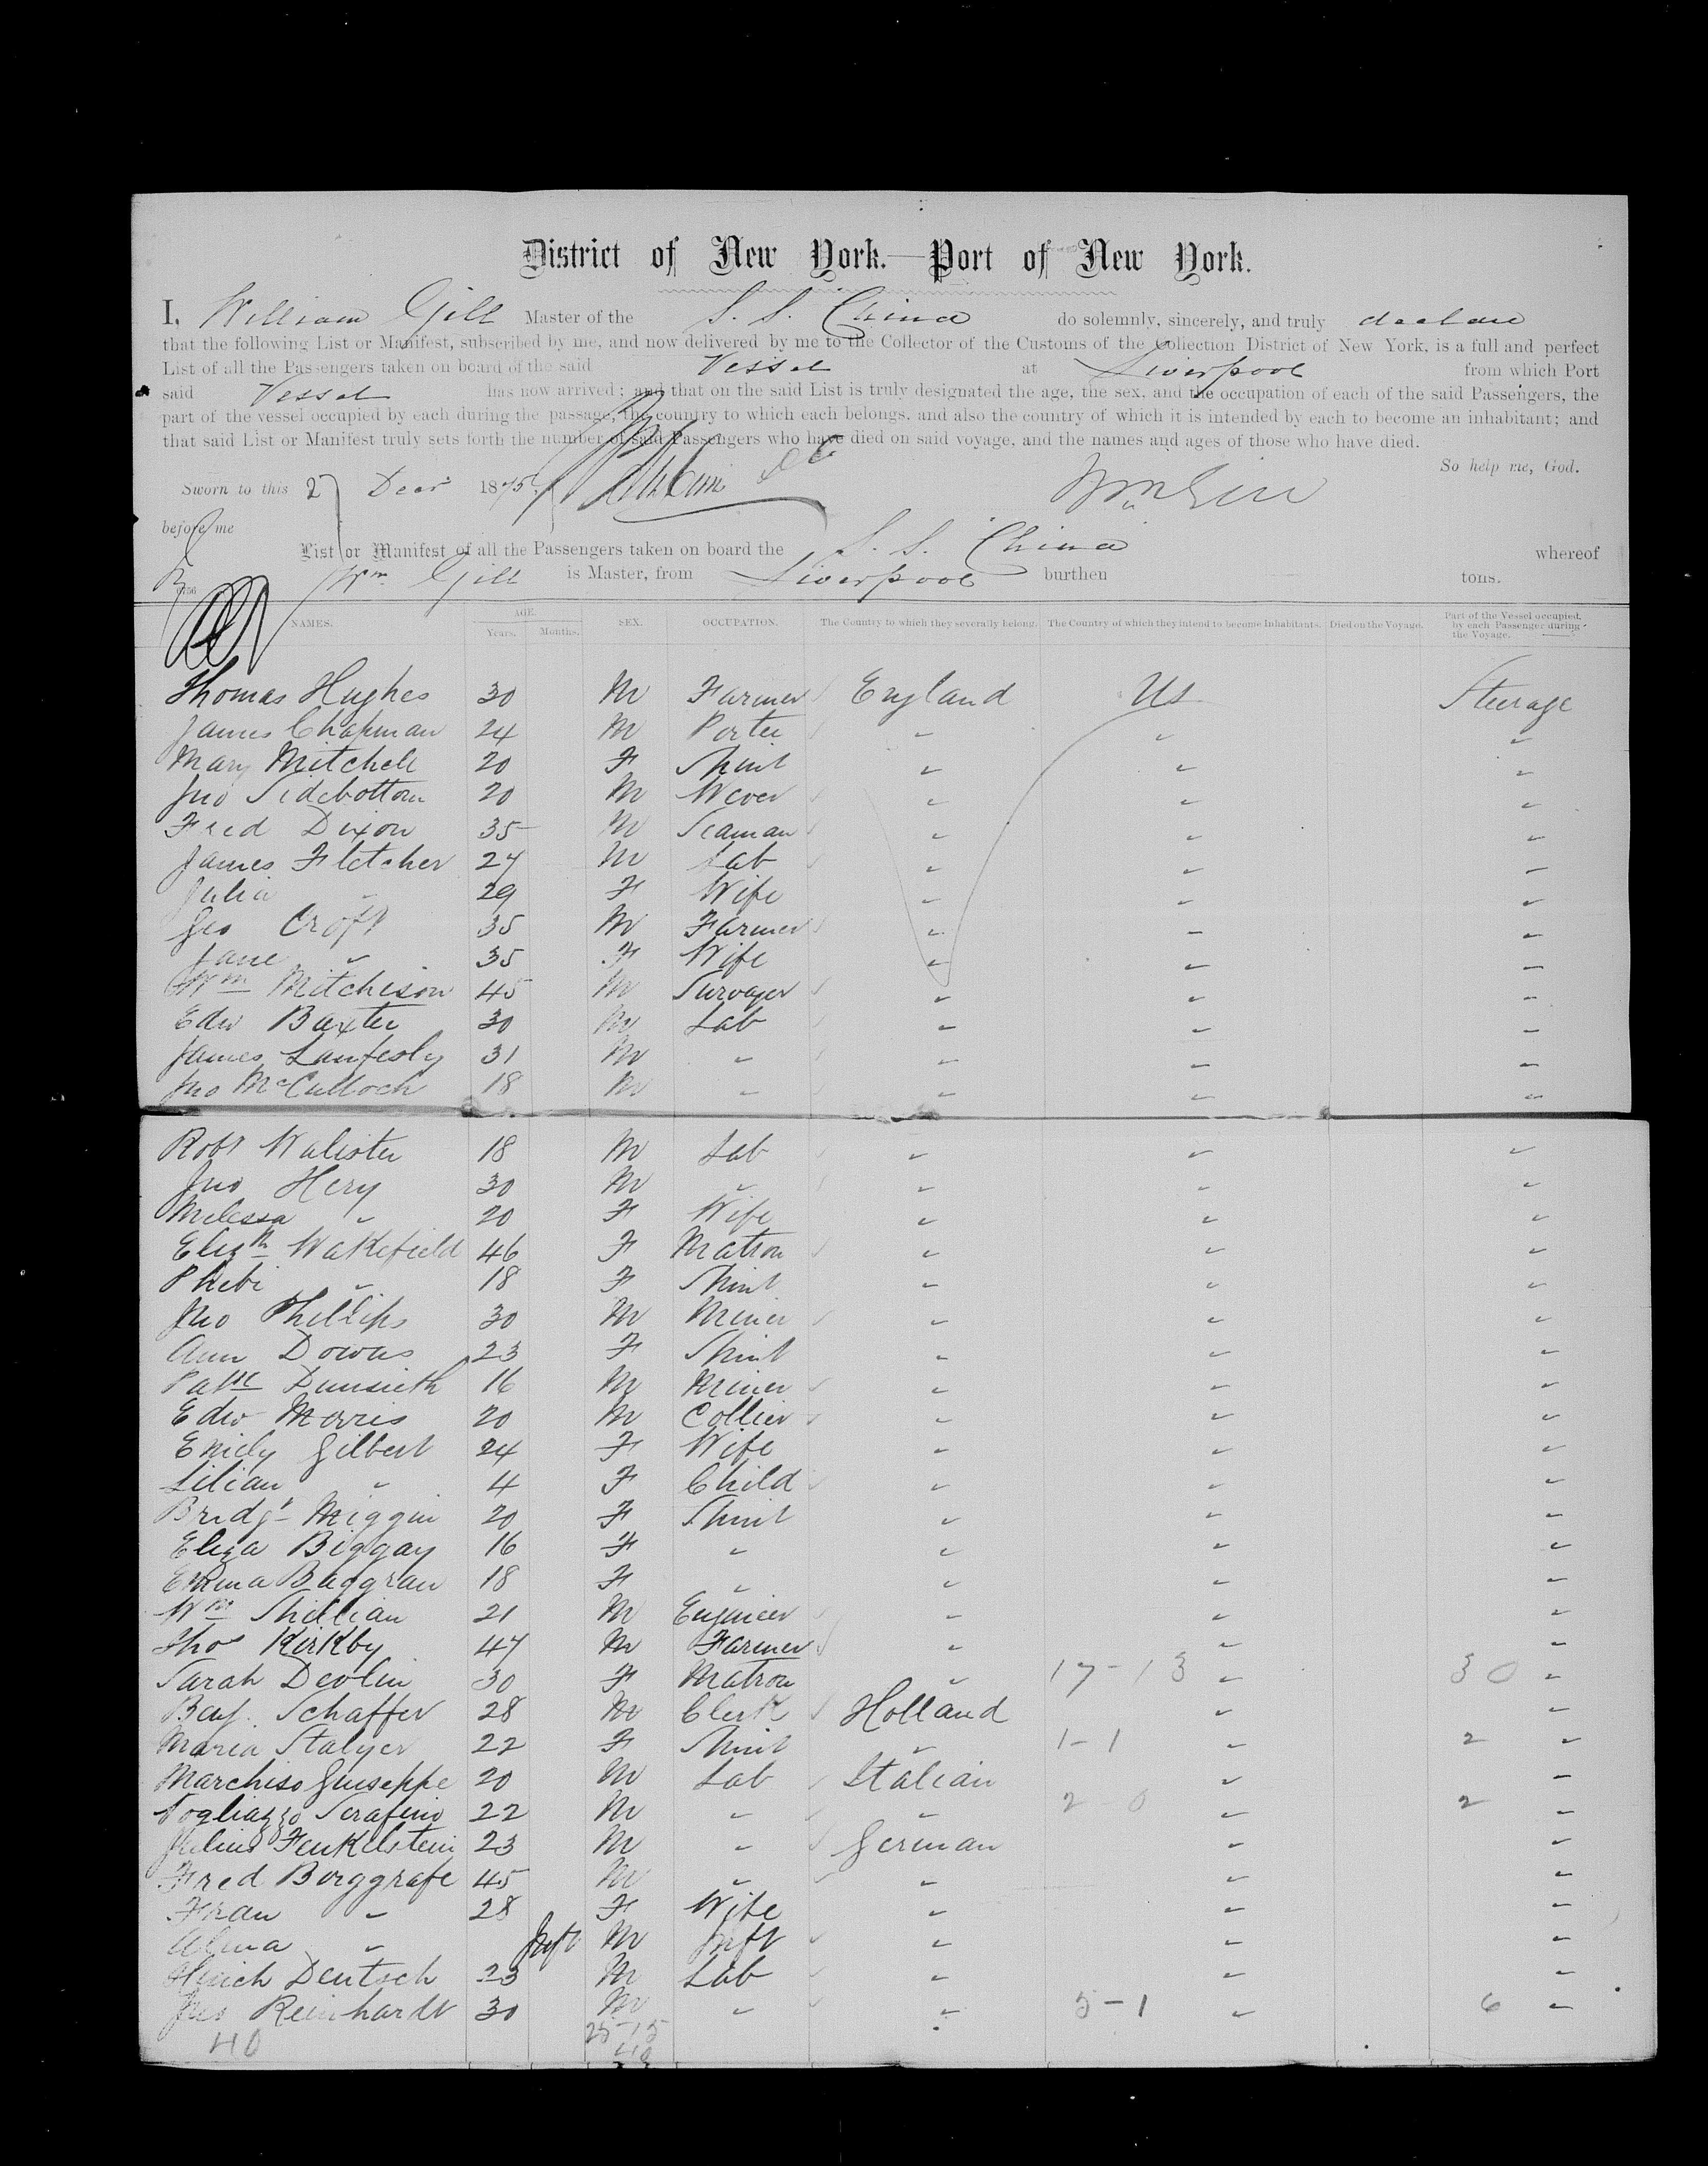 District of New York.—Port of New York.
I, William Gill Master of the S. S. China do solemnly, sincerely, and truly declare
that the following List or Manifest, subscribed by me, and now delivered by me to the Collector of the Customs of the Collection District of New York, is a full and perfect
List of all the Passengers taken on board of the said Vessel at Liverpool from which Port
said Vessel has now arrived; and that on the said List is truly designated the age, the sex, and the occupation of each of the said Passengers, the
part of the vessel occupied by each during the passage, the country to which each belongs, and also the country of which it is intended by each to become an inhabitant; and
that said List or Manifest truly sets forth the number of said Passengers who have died on said voyage, and the names and ages of those who have died.
So help me, God.
Sworn to this 27 Decr 1875 Wm Gill
before me
List or Manifest of all the Passengers taken on board the S. S. China whereof
Wm Gill is Master, from Liverpool burthen tons.
NAMES. AGE. Years. Months. SEX. OCCUPATION. The Country to which they severally belong. The Country of which they intend to become Inhabitants. Died on the Voyage. Part of the Vessel occupied by each Passenger during the Voyage.
Thomas Hughes 30 M Farmer England US Steerage
James Chapman 24 M Porter " " "
Mary Mitchell 20 F Spinst " " "
Jno Sidebottom 20 M Wever " " "
Fred Dixon 35 M Seaman " " "
James Fletcher 27 M Lab " " "
Julia " 29 F Wife " " "
Geo Croft 35 M Farmer " " "
Jane " 35 F Wife " " "
Wm Mitchison 45 M Survayer " " "
Edw Baxter 30 M Lab " " "
James 31 M " " " "
Jno McCulloch 18 M " " " "
Robt Walister 18 M Lab " " "
Jno Hery 30 M " " " "
Melessa " 20 F Wife " " "
Elizth Wakefield 46 F Matron " " "
Phebi " 18 F Spinst " " "
Jno Phillips 30 M Miner " " "
Ann Downs 23 F Spinst " " "
Patk 16 M Miner " " "
Edw Morris 20 M Collier " " "
Emily Gilbert 24 F Wife " " "
Lilian " 4 F Child " " "
Bridgt Miggin 20 F Spinst " " "
Eliza Biggay 16 F " " " "
Emma Baggran 18 F " " " "
Wm Shillian 21 M Engineer " " "
Thos Kirkby 47 M Farmer " " "
Sarah Devlin 30 F Matron " 17-13 " 30 "
Benj. Schaffer 28 M Clerk Holland " "
Maria Stalyer 22 F Spinst " 1-1 " 2 "
Marchiso Giuseppe 20 M Lab Italian " "
Vogliazzo Serafino 22 M " " 2 0 " 2 "
Julius Fenkelstein 23 M " German " "
Fred Borggrafe 45 M " " " "
Frau " 28 F Wife " " "
Alma " Inft M Inft " " "
Heinch Deutsch 23 M Lab " " "
Jno Reinhardt 30 M " " 5-1 " 6 "
40 25-15
40